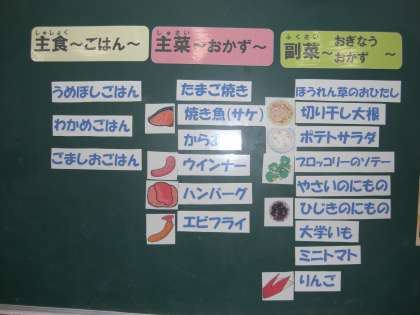 しゅしょく
主食～ごはん～
うめぼしごはん
わかめごはん
ごましおごはん
しゅさい
主菜～おかず～
たまご焼き
焼き魚(サケ)
から
ウインナー
ハンバーグ
エビフライ
ふくさい
副菜～おぎなうおかず～
ほうれん草のおひたし
切り干し大根
ポテトサラダ
ブロッコリーのソテー
やさいのにもの
ひじきのにもの
大学いも
ミニトマト
りんご